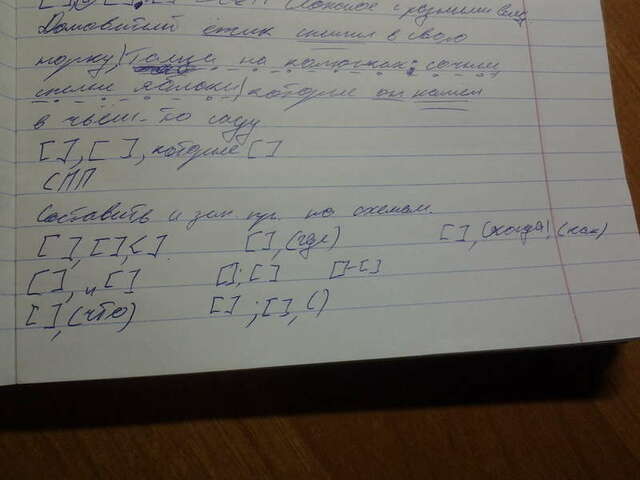 Домовитый ёжик спешил в свою
норку) Тащил на колючках сочные
спелые яблоки) которые он нашел
в чьём-то саду
[ ], [ ], которые [ ]
СПП
Составить и зап. пр. по схемам.
[ ], [ ], ( ). [ ], (где) [ ], (когда), (как)
[ ], и [ ] [ ]; [ ] [ ]-[ ]
[ ], (что) [ ]; [ ], ( )